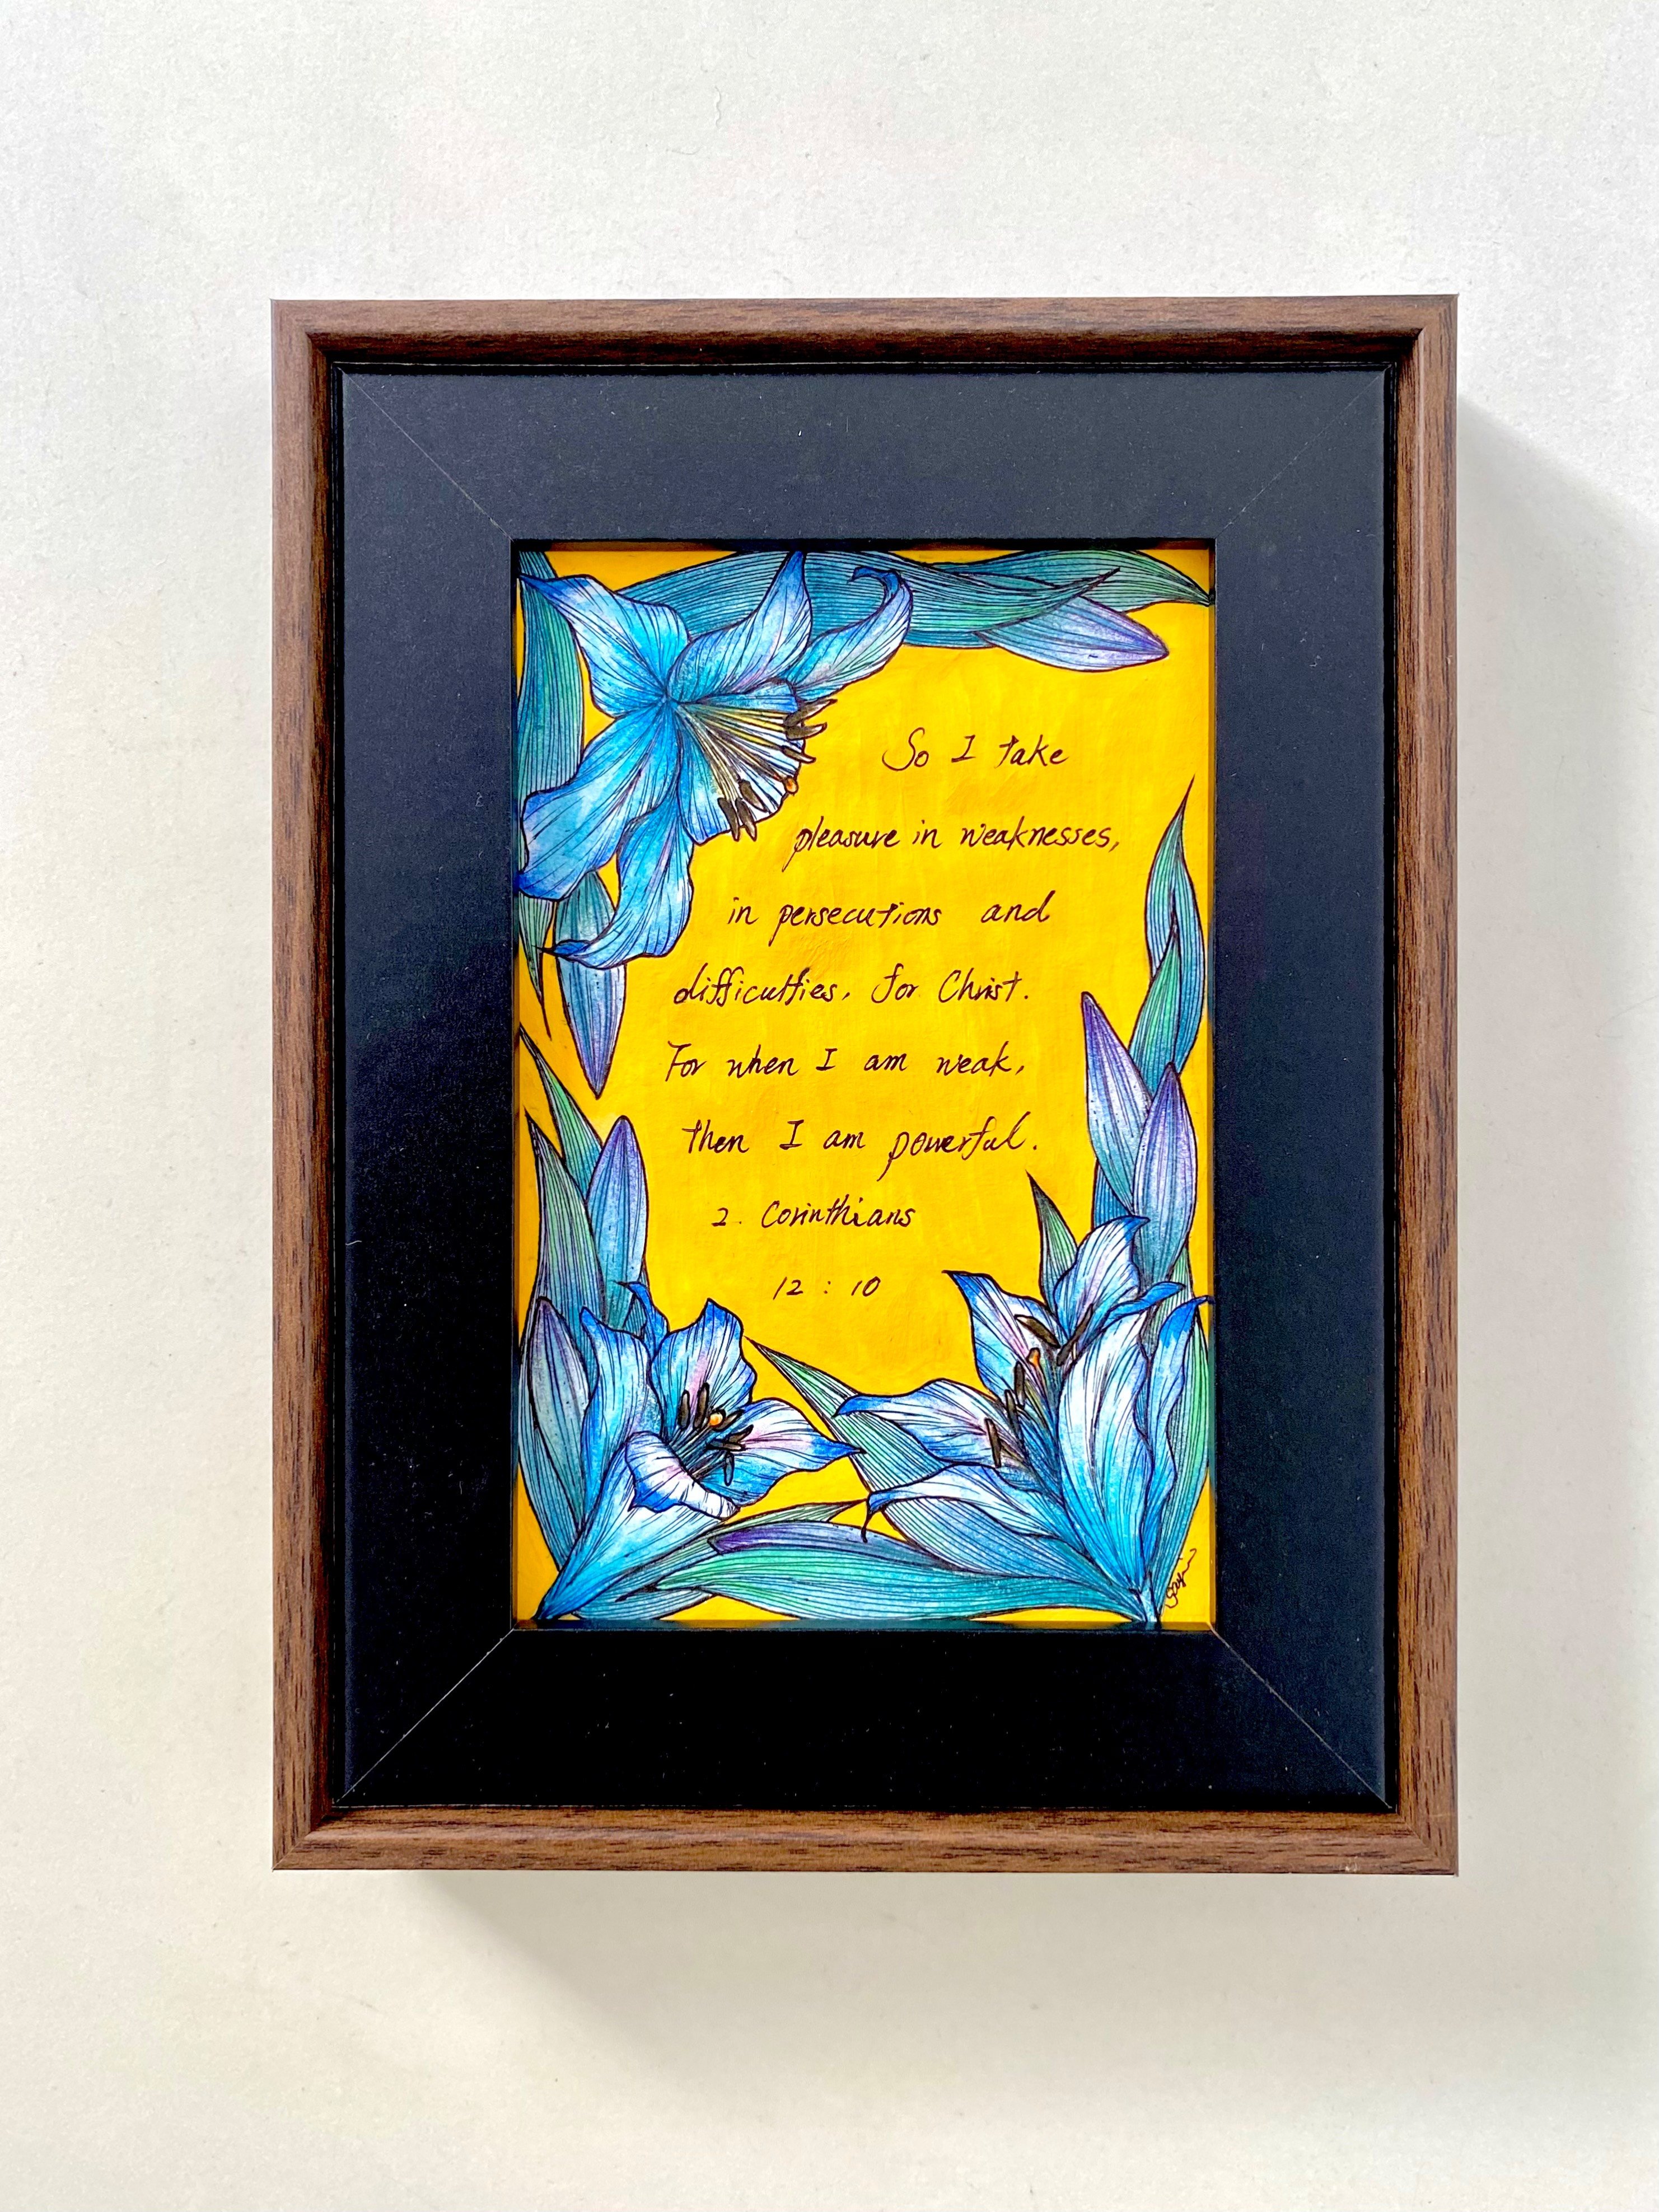 So I take
pleasure in weaknesses,
in persecutions and
difficulties, for Christ.
For when I am weak,
then I am powerful.
2. Corinthians
12 : 10